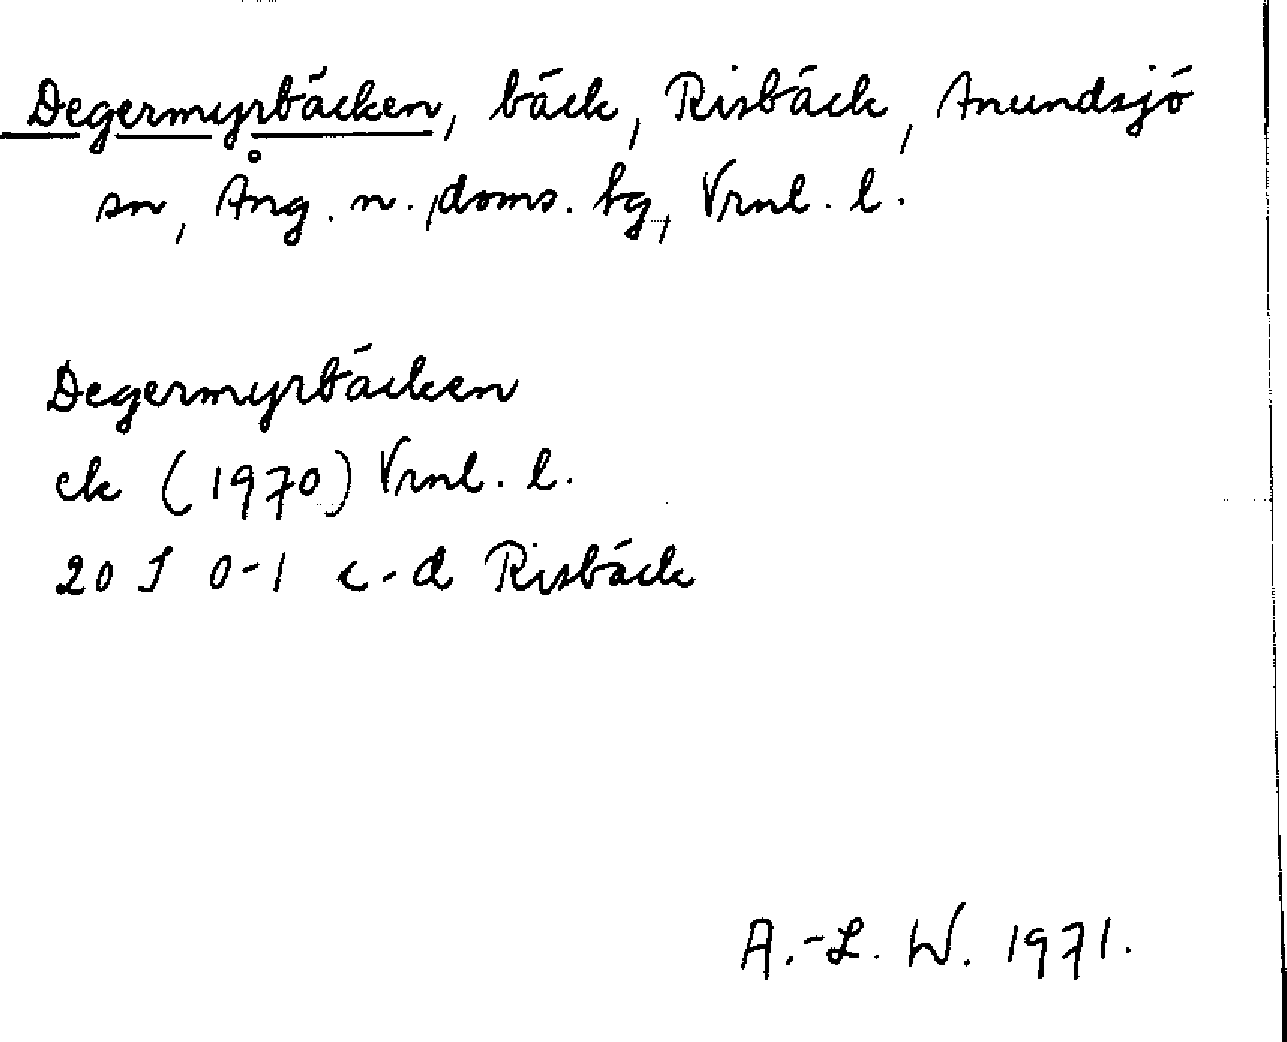 Degermyrbäcken, bäck, Risbäck, Anundsjö
sn, Ång. n. doms. bg, Vrnl. l.
Degermyrbäcken
ek (1970) Vrnl. l.
20 J 0-1 c-d Risbäck
A.-L. W. 1971.